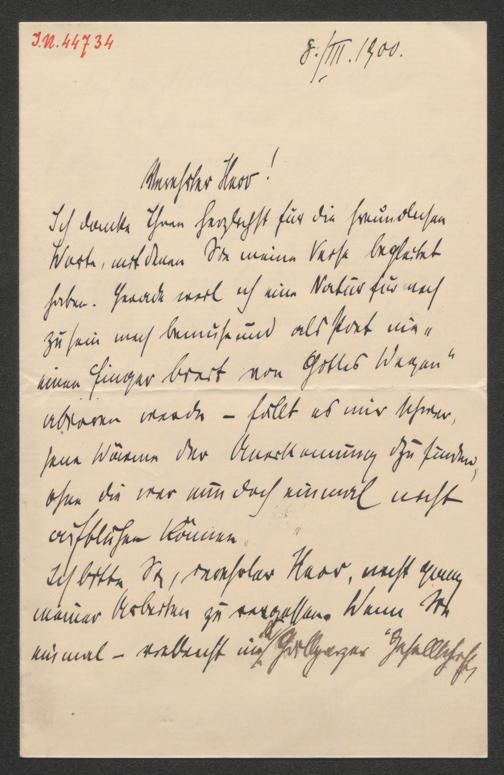 I.N. 44734
8./III. 1900.
Verehrter Herr!
Ich danke Ihnen herzlichst für die freundlichen
Worte, mit denen Sie meine Verse begleitet
haben. Gerade weil ich eine Natur für mich
zu sein mich bemühe und als Poet nie „
einen Finger breit von Gottes Wegen“
abirren werde – fällt es mir schwer,
jene Wärme der Anerkennung zu finden,
ohne die wir nun doch einmal nicht
aufblühen können.
Ich bitte Sie, verehrter Herr, nicht ganz
meiner Arbeiten zu vergessen. Wenn Sie
einmal – vielleicht in der Gesellschaft